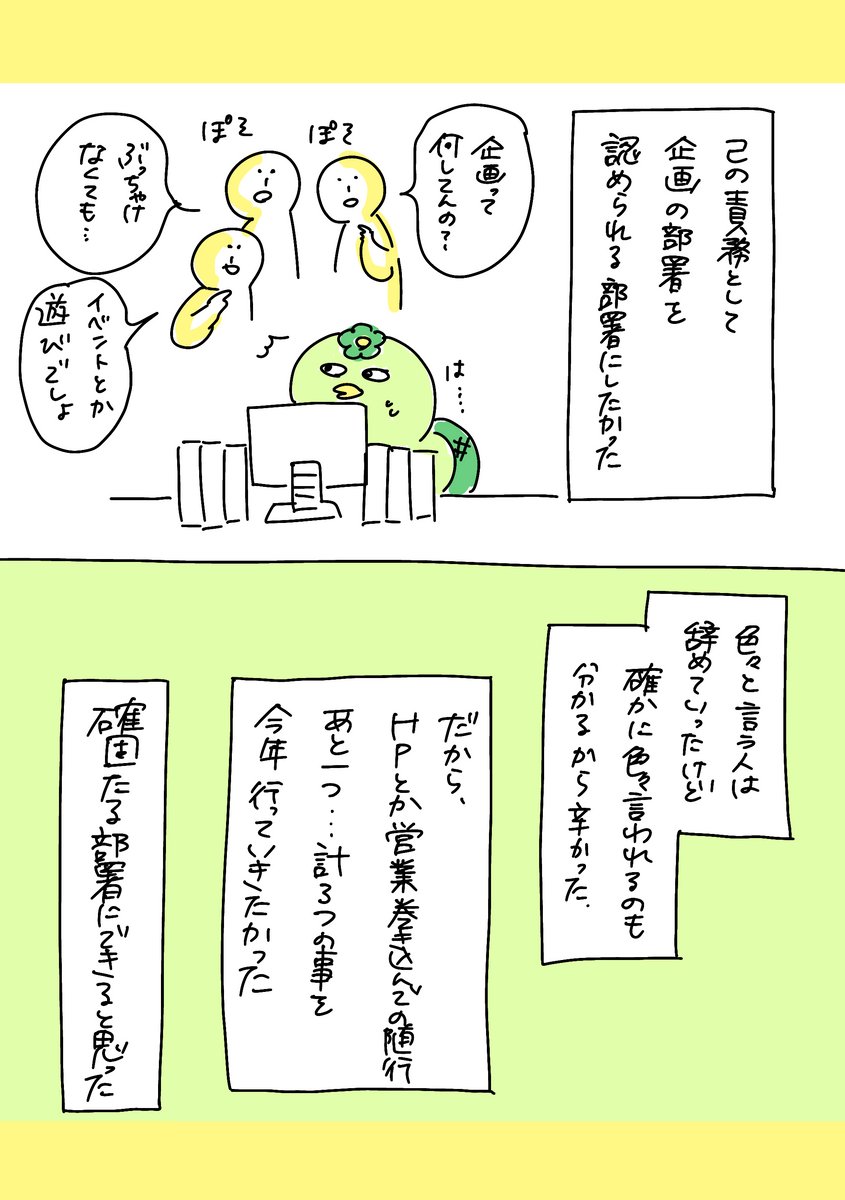 己の責務として
企画の部署を
認められる部署にしたかった
企画って
何してんの？
ぽそ
ぽそ
ぶっちゃけ
なくても…
イベントとか
遊びでしょ
は….
色々と言う人は
辞めていったけど
確かに色々言われるのも
分かるから辛かった.
だから、
HPとか営業巻き込んでの随行
あと一つ…計3つの事を
今年行っていきたかった
確固たる部署にできると思った